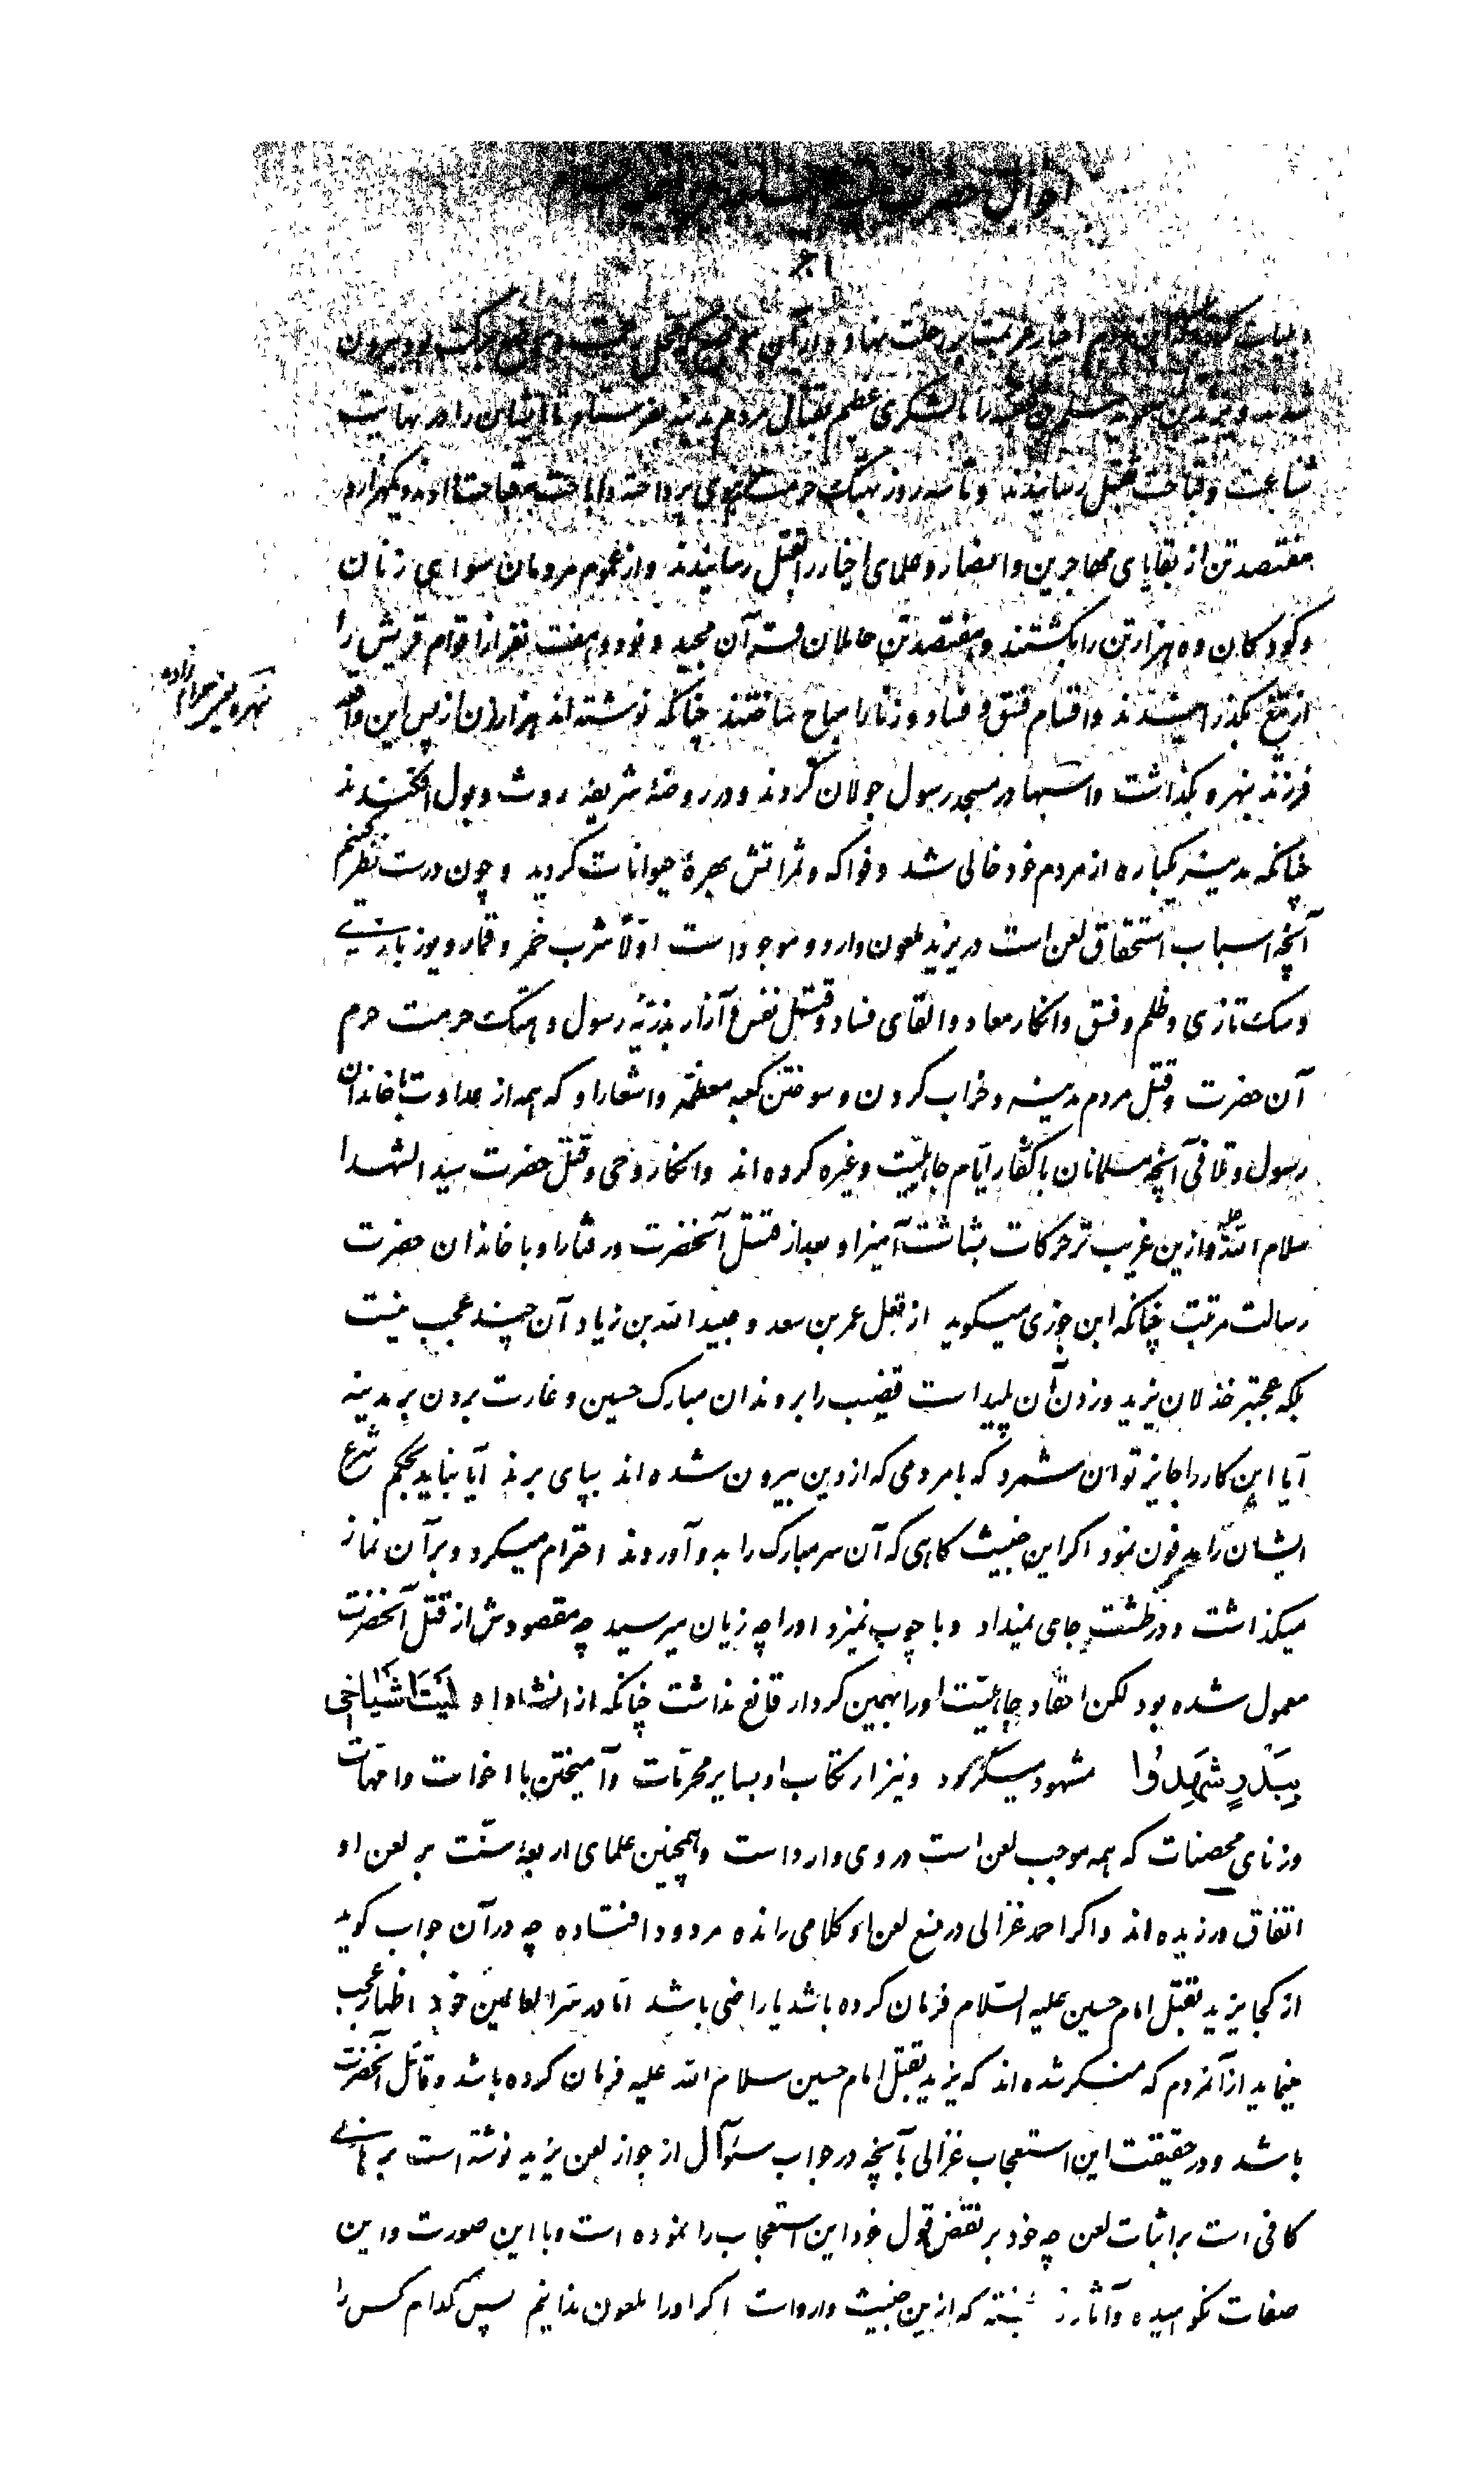 احوال حضرت
شدند و یزید بن معویه را با لشکری عظیم بقتال مردم مدینه بفرستاد تا ایشان را در نهایت
شناعت و قباحت بقتل رسانیدند و تا سه روز بهتک حرمت نبوی پرداخته و یکهزار و
هفتصد تن از بقایای مهاجرین و انصار و علمای اخیار را بقتل رسانیدند و از عموم مردمان سوای زنان
و کودکان ده هزار تن را بکشتند و هفتصد تن حاملان قرآن مجید و نود و هفت نفر از اقوام قریش را
از تیغ بگذرانیدند و اقسام فسق و فساد و زنا را مباح ساختند چنانکه نوشته اند هزار زن از پس این واقعه
فرزند بهره و بگذاشت و اسبها در مسجد رسول جولان کردند و در روضهٔ شریفه روث و بول افکندند
چنانکه مدینه یکباره از مردم خود خالی شد و فواکه و ثمراتش بهرهٔ حیوانات کردید و چون درست نظر کنیم
آنچه اسباب استحقاق لعن است در یزید ملعون وارد و موجود است اولاً شرب خمر و قمار و یوز بازی
و سک تازی و ظلم و فسق و انکار معاد و القای فساد و قتل نفس و آزار بذریّه رسول و هتک حرمت حرم
آن حضرت و قتل مردم مدینه و خراب کردن و سوختن کعبه معظمه و اشعار او که همه از عداوت با خاندان
رسول و تلافی آنچه مسلمانان با کفار ایّام جاهلیّت و غیره کرده اند و انکار وحی و قتل حضرت سید الشهدا
سلام الله علیه و ازین غریب تر حرکات بشاشت آمیز او بعد از قتل آنحضرت و رفتار او با خاندان حضرت
رسالت مرتبت چنانکه ابن جوزی میکوید از فعل عمر بن سعد و عبید الله بن زیاد آن چند عجب نیست
بلکه عجبتر خذلان یزید و زدن آن پلید است قضیب را بر دندان مبارک حسین و غارت بردن بر مدینه
آیا این کار را جایز توان شمرد که با مردمی که از دین بیرون شده اند بپای برند آیا نباید بحکم شرع
ایشان را مدفون نمود اکر این خبیث کاهی که آن سر مبارک را بدو آوردند احترام میکرد و بر آن نماز
میکذاشت و در طشت جای نمیداد و با چوب نمیزد او را چه زیان میرسید چه مقصودش از قتل آنحضرت
معمول شده بود لکن احقاد جاهلیّت او را بهمین کردار قانع نداشت چنانکه از انشاد او لَیْتَ اَشْیاخی
بِبَدْرٍ شَهِدُوا مشهود میکردد و نیز ارتکاب او بسایر محرّمات و آمیختن با اخوات و امّهات
و زنای محصنات که همه موجب لعن است در وی وارد است و همچنین علمای اربعهٔ سنّت بر لعن او
اتفاق ورزیده اند و اکر احمد غزالی در منع لعن او کلامی رانده مردود افتاده چه در آن جواب کوید
از کجا یزید بقتل امام حسین علیه السّلام فرمان کرده باشد یا راضی باشد امّا در سرّ العالمین خود اظهار عجب
مینماید از آنمردم که منکر شده اند که یزید بقتل امام حسین سلام الله علیه فرمان کرده باشد و قاتل آنحضرت
باشد و در حقیقت این استعجاب غزالی بآنچه در جواب سئوآل از جواز لعن یزید نوشته است برهانی
کافی است بر اثبات لعن چه خود بر نقض قول خود این استعجاب را نموده است و با این صورت و این
صفات نکوهیده و آثار که ازین خبیث وارد است اکر او را ملعون ندانیم پس کدام کس را